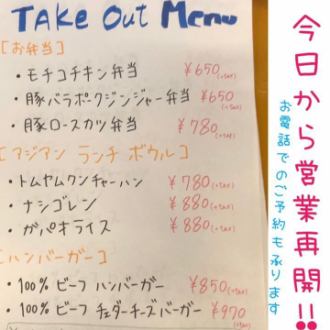 TAKE Out Menu
[お弁当]
・モチコチキン弁当 ¥650(+tax)
・豚バラポークジンジャー弁当 ¥650(+tax)
・豚ロースカツ弁当 ¥780(+tax)
[アジアン ランチ ボウル]
・トムヤムクンチャーハン ¥780(+tax)
・ナシゴレン ¥880(+tax)
・ガパオライス ¥880(+tax)
[ハンバーガー]
・100% ビーフ ハンバーガー ¥850(+tax)
・100% ビーフ チェダーチーズバーガー ¥970(+tax)
今日から営業再開!!
お電話でのご予約も承ります